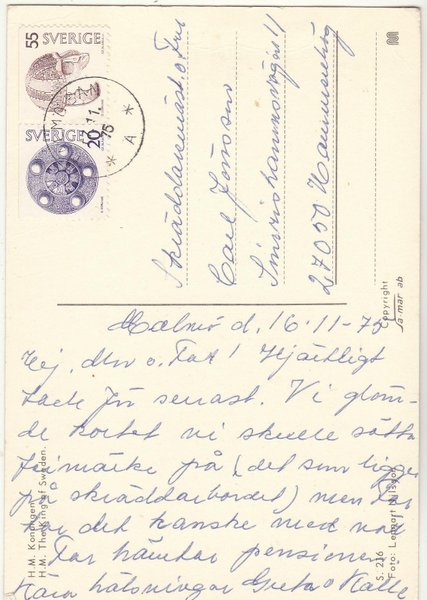 55 SVERIGE
MALMÖ
11.
75
* A *
SVERIGE 20
Skräddaremäst. o Fru
Carl Jönsson
27050 Hammenhög
Copyright
ja-mar ab
Malmö d. 16-11-75
Hej. Mor o. Far! Hjärtligt
tack för senast. Vi glöm-
de kortet vi skulle sätta
frimärke på (det som ligger
på skräddarbordet) men Far
tar det kanske med när
Far hämtar pensionen
Kära hälsningar Greta o Kalle
H.M. Konungen.
H.M. The King of Sweden.
S. 226
Foto: Lennart Nilsson